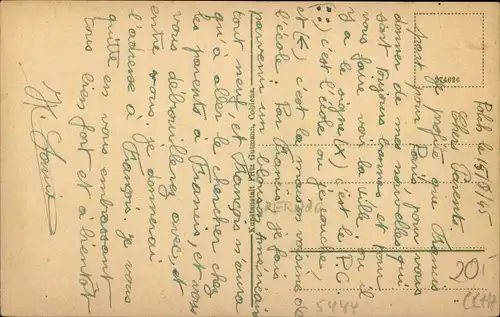 Polch le 15/9/45
Chers Parents.
Je profite que Francis
part pour Paris pour vous
donner de mes nouvelles qui
sont toujours bonnes et pour
vous faire voir la ville ou il
y a le signe (X) c'est le P.C
(::) c'est l'école ou je couche,
et (<) c'est la maison voisine de
l'école. Par Francis je fais
parvenir un blouson Américain
tout neuf, et François n'aura
qu'à aller le chercher chez
les parents à Francis, et vous
vous débrouillerez avec, et
entre vous, je donnerai
l'adresse à François, je vous
quitte en vous embrassant
tous bien fort et à bientôt
Kunstanstalt Fritz Gutmann,
20
5444